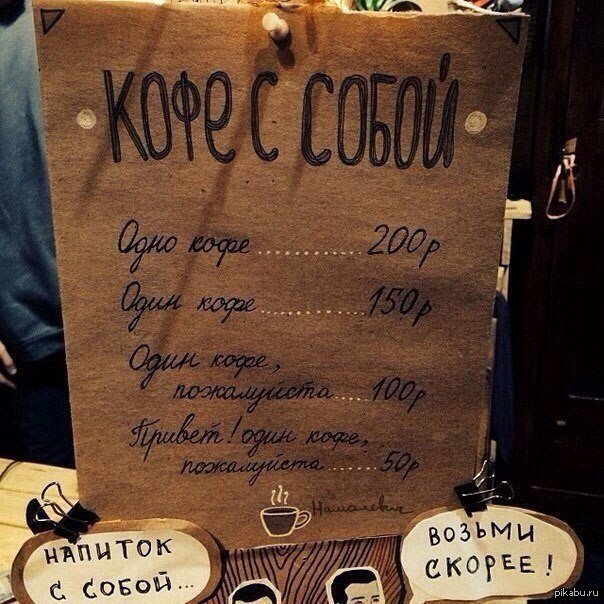 КОФЕ С СОБОЙ
Одно кофе ............ 200р
Один кофе ............ 150р
Один кофе,
пожалуйста ..... 100р
Привет! один кофе, ...
пожалуйста ........ 50р
Намалевич
НАПИТОК
С СОБОЙ...
ВОЗЬМИ
СКОРЕЕ!
pikabu.ru